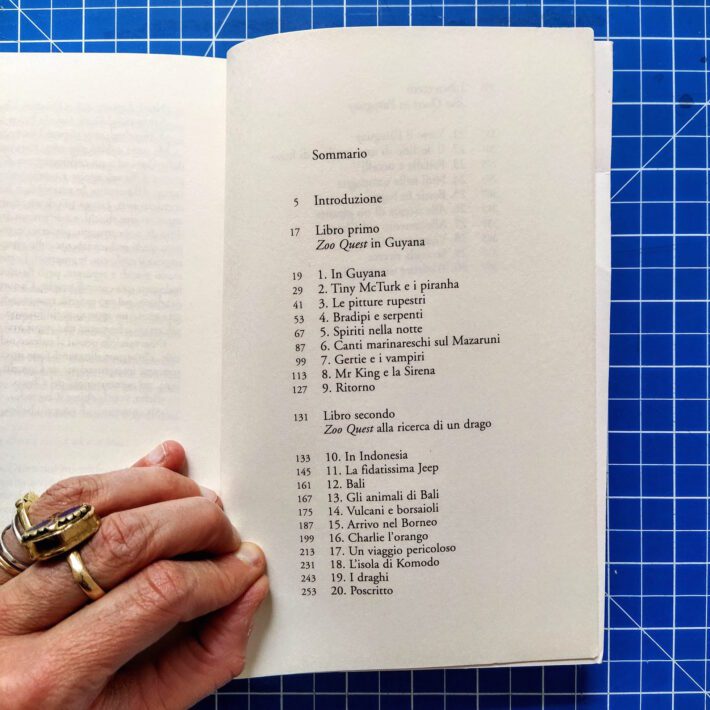 Sommario
5 Introduzione
17 Libro primo
Zoo Quest in Guyana
19 1. In Guyana
29 2. Tiny McTurk e i piranha
41 3. Le pitture rupestri
53 4. Bradipi e serpenti
67 5. Spiriti nella notte
87 6. Canti marinareschi sul Mazaruni
99 7. Gertie e i vampiri
113 8. Mr King e la Sirena
127 9. Ritorno
131 Libro secondo
Zoo Quest alla ricerca di un drago
133 10. In Indonesia
145 11. La fidatissima Jeep
161 12. Bali
167 13. Gli animali di Bali
175 14. Vulcani e borsaioli
187 15. Arrivo nel Borneo
199 16. Charlie l'orango
213 17. Un viaggio pericoloso
231 18. L'isola di Komodo
243 19. I draghi
253 20. Poscritto